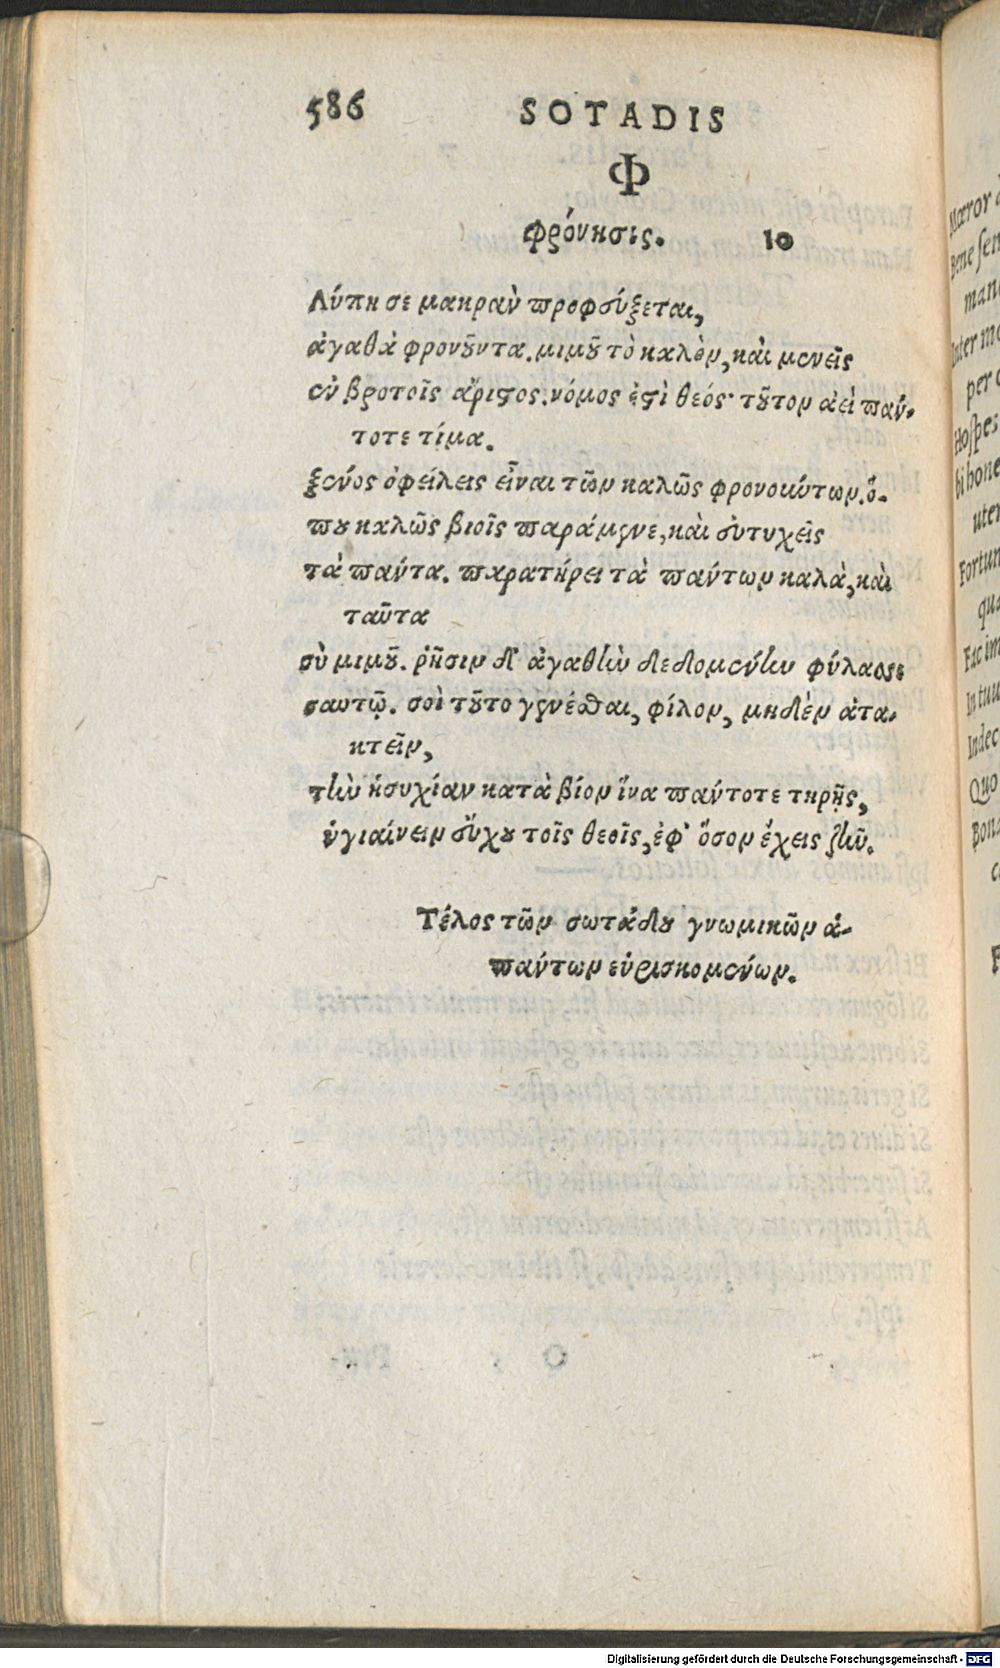 586 SOTADIS
Φ
φρόνησις. 10
Λύπη σε μακρὰν προσφεύξεται,
ἀγαθὰ φρονοῦντα. μιμοῦ τὸ καλὸν, καὶ μενεῖς
ἐν βροτοῖς ἄριστος. νόμος ἐστὶ θεός· τοῦτον ἀεὶ πάν-
τοτε τίμα.
ξένος ὀφείλεις εἶναι τῶν καλῶς φρονούντων. ὅ-
που καλῶς βιοῖς παράμενε, καὶ εὐτυχεῖς
τὰ πάντα. παρατήρει τὰ πάντων καλὰ, καὶ
ταῦτα
σὺ μιμοῦ. ῥῆσιν δ' ἀγαθὴν δεδομένην φύλασσε
σαυτῷ. σοὶ τοῦτο γενέσθαι, φίλον, μηδὲν ἀτα-
κτεῖν,
τὴν ἡσυχίαν κατὰ βίον ἵνα πάντοτε τηρῇς,
ὑγιαίνειν εὔχου τοῖς θεοῖς, ἐφ' ὅσον ἔχεις ζῆν.
Τέλος τῶν σωτάδου γνωμικῶν ἁ-
πάντων εὑρισκομένων.
Mæror
Bene
man
Inter
per
Hospes
bi hone
Fortun
qua
Fac im
In tuu
Indec
Quo
Bona
Digitalisierung gefördert durch die Deutsche Forschungsgemeinschaft - DFG